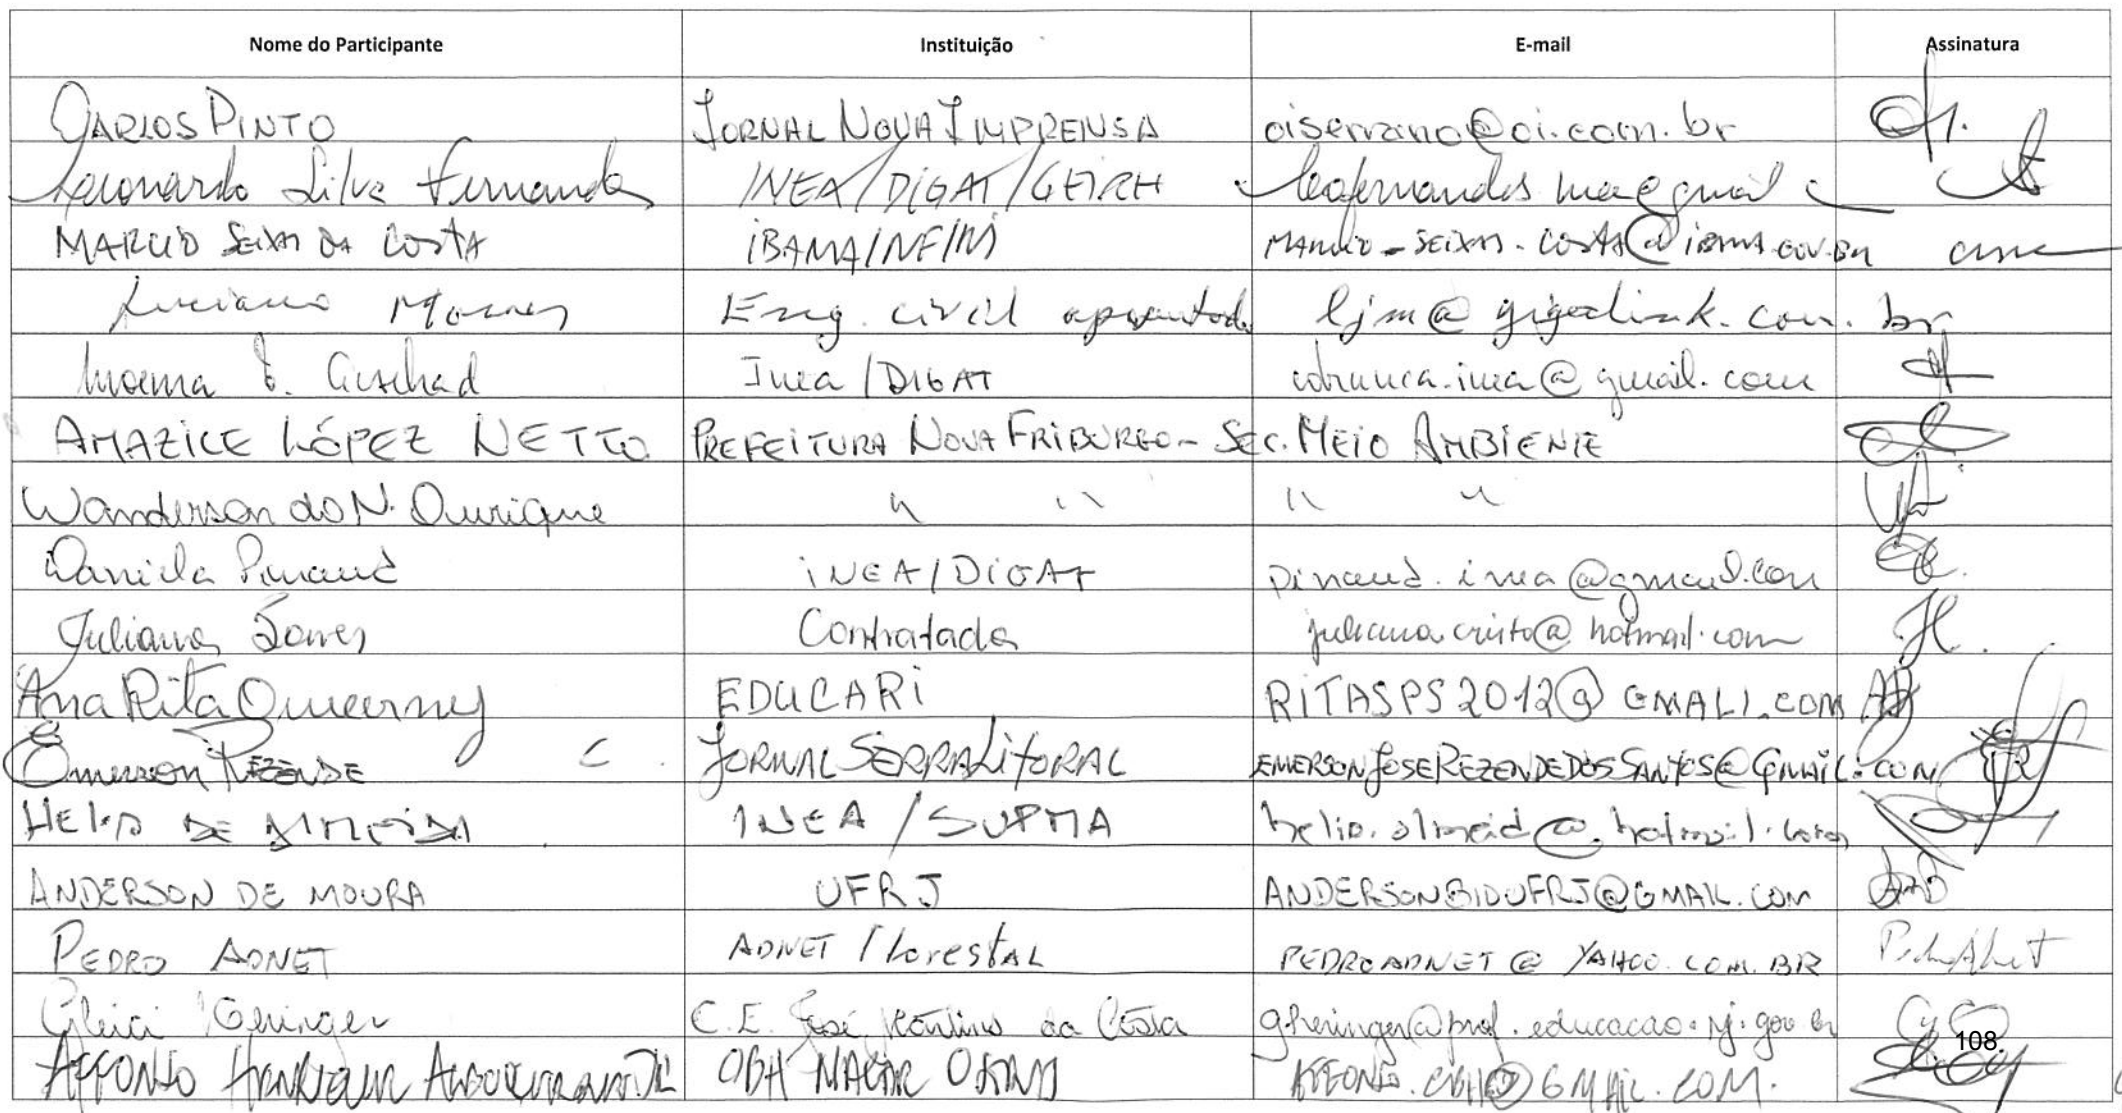 Nome do Participante Instituição E-mail Assinatura
CARLOS PINTO JORNAL NOVA IMPRENSA oiserrano@oi.com.br
Leonardo Silva Fernandes INEA/DIGAT/GEIRH leofernandes
MARCIO SEIXAS DA COSTA IBAMA/NF/
Luciano Eng. civil aposentado ljm@gigalink.com.br
Moema Inea/DIGAT @gmail.com
AMAZILE LÓPEZ NETTO PREFEITURA NOVA FRIBURGO - SEC. MEIO AMBIENTE
Wanderson do N. Ourique " " " "
Daniela Pinaud INEA/DIGAT pinaud.inea@gmail.com
Juliana Contratada juliana.cristo@hotmail.com
Ana Rita EDUCARI RITASPS2012@GMALI.COM
Emerson REZENDE JORNAL SERRALITORAL EMERSONJOSEREZENDEDOSSANTOS@GMAIL.COM
HELIO DE ALMEIDA INEA/SUPMA helio.almeid@hotmail.com
ANDERSON DE MOURA UFRJ ANDERSONBIOUFRJ@GMAIL.COM
PEDRO ADNET ADNET FlorestAL PEDROADNET@YAHOO.COM.BR
Gleici C.E. José da Costa gheringer@prof.educacao.rj.gov.br
108
AFFONSO HENRIQUE ALBUQUERQUE JR @GMAIL.COM.